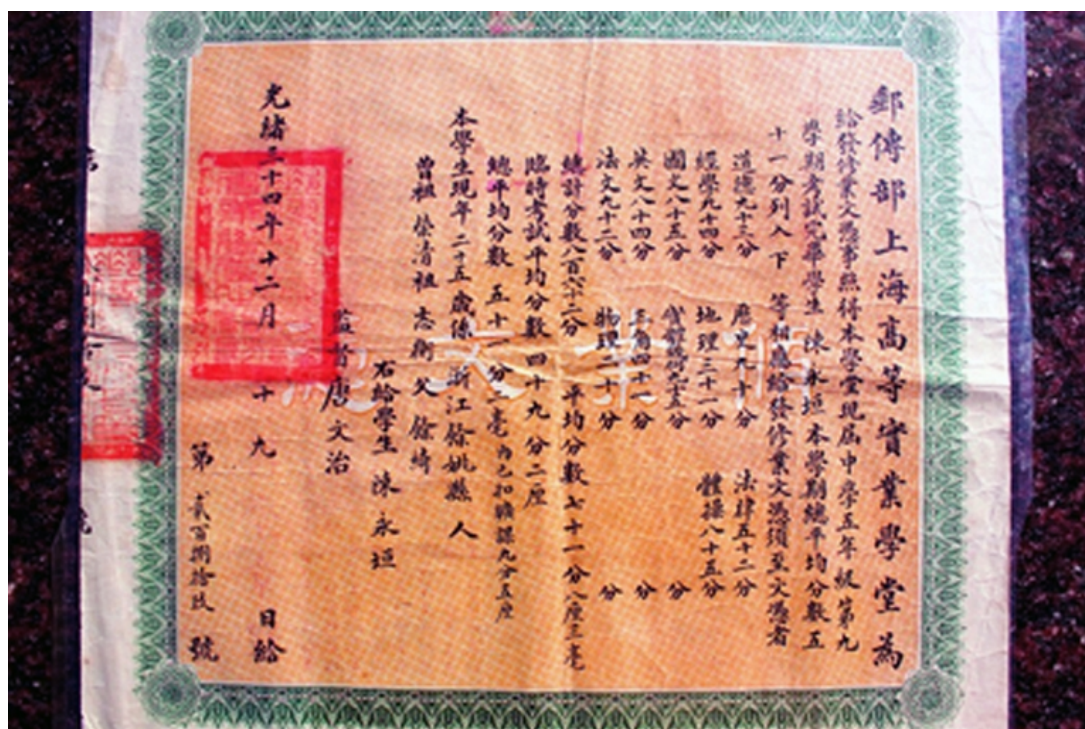 郵傳部上海高等實業學堂為
給發修業文憑事照得本學堂現屆中學五年級第九
學期考試完畢學生陳永垣本學期總平均分數五
十一分列入下等相應給發修業文憑須至文憑者
道德九十六分 歷史九十分 法律五十二分
經學九十四分 地理三十一分 體操八十五分
國文八十五分 分
英文八十四分 三角四十一分 分
法文九十二分 物理十分 分
總計分數八百六十二分 平均分數七十一分八厘三毫
臨時考試平均分數四十九分二厘
總平均分數五十一分三毫內已扣曠課九分五厘
本學生現年二十五歲係浙江餘姚縣人
曾祖榮清祖志衡父餘崎
右給學生陳永垣
監督唐文治
光緒三十四年十二月十九日給
第貳百捌拾玖號
修業文憑